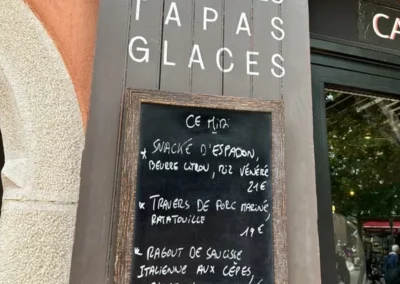 TAPAS
GLACES
CA
CE MIDI
* SNACKÉ D'ESPADON,
BEURRE CITRON, RIZ VÉNÉRÉ
21€
* TRAVERS DE PORC MARINÉ,
RATATOUILLE
19€
* RAGOUT DE SAUCISSE
ITALIENNE AUX CÈPES,